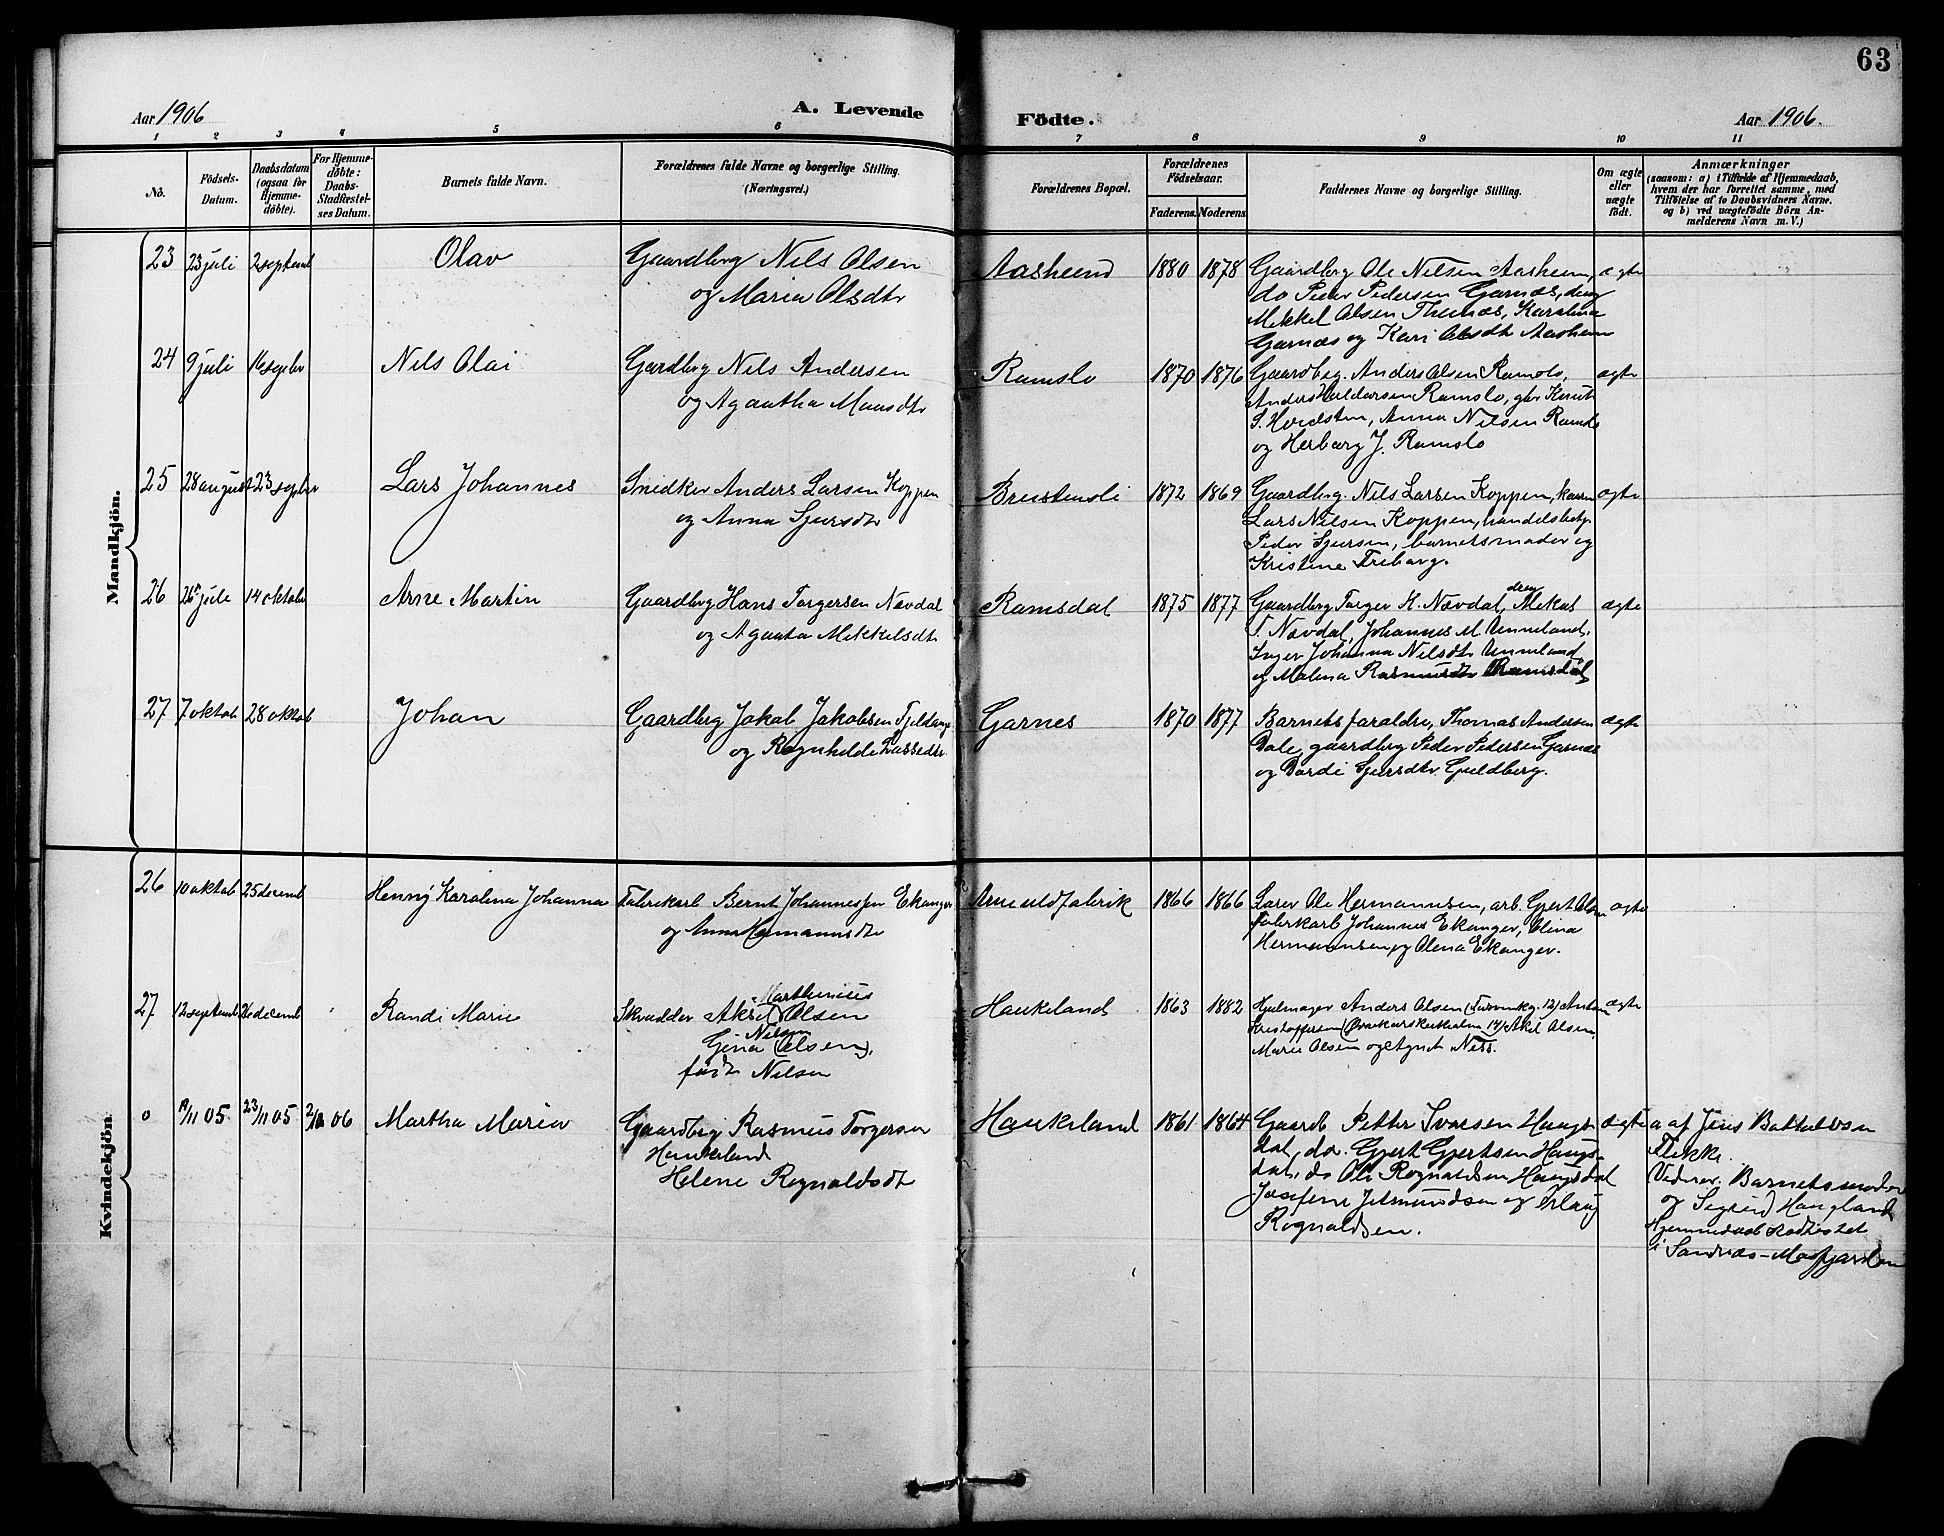 63
Aar 1906
A. Levende
Födte.
Aar 1906.
1 2 3 4 5 6 7 8 9 10 11
No.
Födsels-
Datum.
Daabsdatum
(ogsaa for
Hjemme-
døbte).
For Hjemme-
döbte:
Daabs-
Stadfæstel-
ses Datum.
Barnets fulde Navn.
Forældrenes fulde Navne og borgerlige Stilling.
(Næringsvei.)
Forældrenes Bopæl.
Forældrenes
Födselsaar.
Faderens. Moderens.
Faddernes Navne og borgerlige Stilling.
Om ægte
eller
uægte
födt.
Anmærkninger
(saasom: a) i Tilfælde af Hjemmedaab,
hvem der har forrettet samme, med
Tilföielse af to Daabsvidners Navne.
og b) ved uægtefödte Börn An-
melderens Navn m.V.)
Mandkjön.
23 23 juli 2 septemb Olav
Gaardbrg Nils Olsen
og Maria Olsdtr
Aasheim 1880 1878
Gaardbrg Ole Nilsen Aasheim, ægte
do Peder Pedersen Garnæs, dreng
Mikkel Olsen Thunæs, Karolina
Garnæs og Kari Olsdtr Aasheim
24 9 juli 16 septbr Nils Olai
Gardbrg Nils Andersen
og Agaatha Monsdtr
Ramslo 1870 1876
Gaardbrg. Anders Olsen Ramslo, ægte
Anders Haldorsen Ramslo, gbr Knut
S. Hvidsten, Anna Nilsen Ramslo
og Herborg J. Ramslo
25 28 august 23 septbr Lars Johannes
Snedker Anders Larsen Koppen
og Anna Sjursdtr
Breistensli 1872 1869
Gaardbrg. Nils Larsen Koppen, ægte
Lars Nilsen Koppen, handelsbetj.
Peder Sjursen, barnetsmoder og
Kristine Friborg.
26 26 juli 14 oktobr Arne Martin
Gaardbrg Hans Torgersen Nævdal
og Agaata Mikkelsdtr
Ramsdal 1875 1877
Gaardbrg Torger H. Nævdal, dreng Mikal ægte
T. Nævdal, Johannes M. Unneland,
Inger Johanna Nilsdtr Unneland
og Malena Rasmusdtr Ramsdal
27 7 oktob 28 oktob Johan
Gaardbrg Jakob Jakobsen
og Ragnhilde Lassedtr
Garnes 1870 1877
Barnets foræeldre, Thomas Andersen ægte
Dale, gaardbrg Peder Pedersen Garnæs
og Dordi Sjursdtr Guldberg.
Kvindekjön.
26 10 oktob 25 decemb Henny Karolina Johanna
Fabrikarb Bernt Johannessen Ekanger
og Anna Hermannsdtr
Arne uldfabrik 1866 1866
Larer Ole Hermannsen, arb. Gjert Olsen ægte
Fabrikarb Johannes Ekanger, Elina
Hermannsen, og Olena Ekanger.
27 12 septemb 26 decemb Randi Marie
Marthinius
Skrædder Aksel Olsen
Nilsen
Gina (Olsen),
født Nilsen
Haukeland 1863 1882
Hjulmager Anders Olsen Anton ægte
Kristoffersen Aksel Olsen,
Marie Olsen og Agnet Ness.
0 19/11 05 23/11 05 06 Martha Maria
Gaardbrg Rasmus Torgersen
Haukeland
Helene Rognaldsdtr
Haukeland 1861 1864
Gaardb Petter Ivarsen Haugs- ægte
dal, do. Gjert Gjertsen Haugs-
dal, do Ole Rognaldsen Haugsdal
Josefine Jetmundsen og Erlaug
Rognaldsen.
a af Jens Battolvsen
Flekke.
Vidner: Barnets moder
og Sigrid Haugland
Hjemmedaab stadfæstet
i Sandnæs – Masfjorden